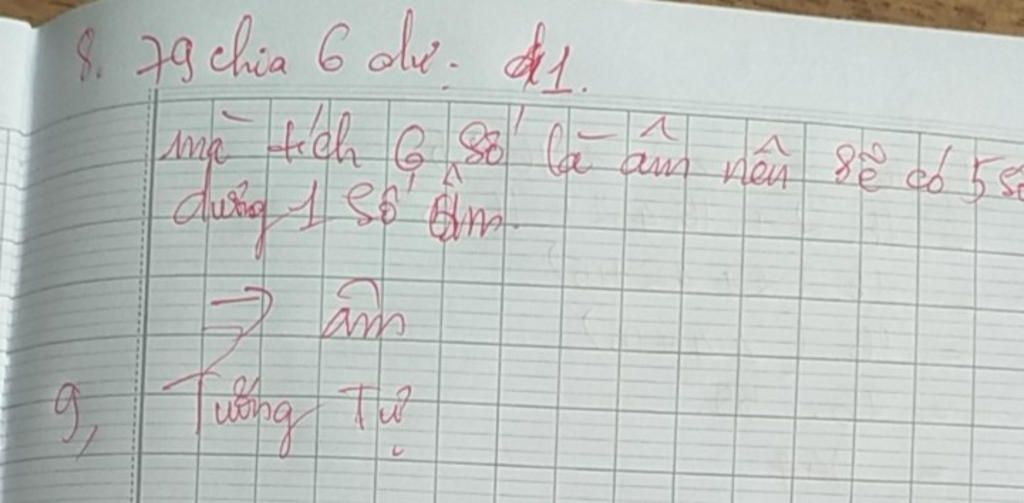 8. 79 chia 6 dư. 1.
mà tích 6 số là âm nên sẽ có 5 số
dương 1 số âm.
⇒ âm
9, Tương Tự